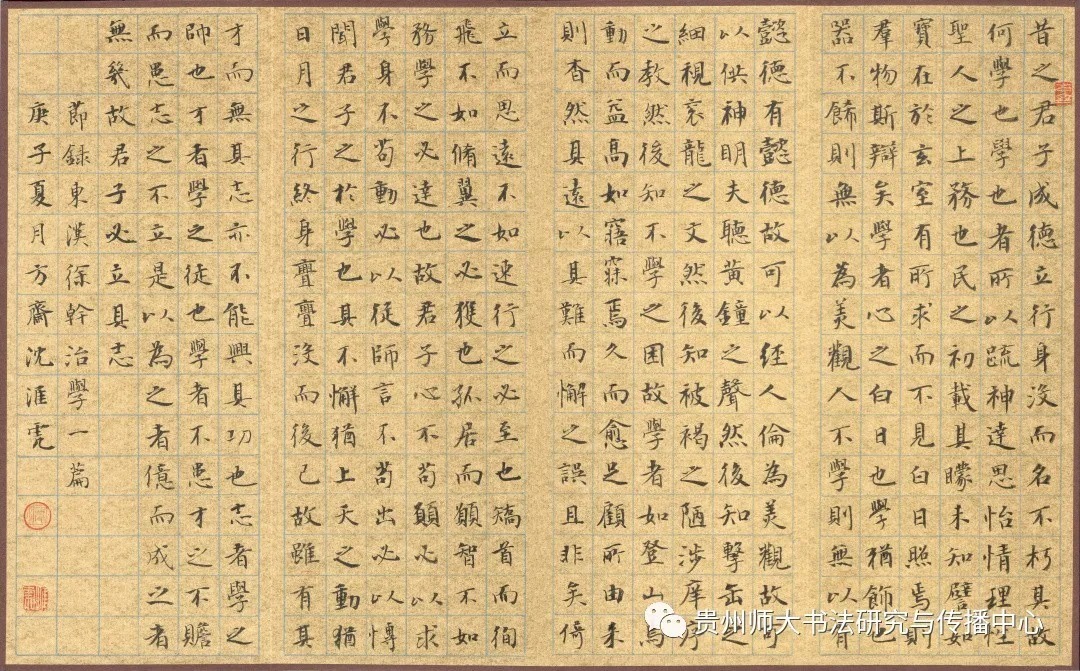 昔之君子成德立行身沒而名不朽其故
何學也學也者所以疏神達思怡情理性
聖人之上務也民之初載其矇未知譬如
寶在於玄室有所求而不見白日照焉則
羣物斯辯矣學者心之白日也學猶飾也
器不飾則無以為美觀人不學則無以有
懿德有懿德故可以經人倫為美觀故可
以供神明夫聽黃鐘之聲然後知擊缶之
細視袞龍之文然後知被褐之陋涉庠序
之教然後知不學之困故學者如登山焉
動而益高如寤寐焉久而愈足顧所由來
則杳然其遠以其難而懈之誤且非矣倚
立而思遠不如速行之必至也矯首而徇
飛不如脩翼之必獲也孤居而願智不如
務學之必達也故君子心不苟願必以求
學身不苟動必以從師言不苟出必以博
聞君子之於學也其不懈猶上天之動猶
日月之行終身亹亹沒而後已故雖有其
才而無其志亦不能興其功也志者學之
帥也才者學之徒也學者不患才之不贍
而患志之不立是以為之者億而成之者
無幾故君子必立其志
節錄東漢徐幹治學一篇
庚子夏月方齋沈
贵州师大书法研究与传播中心